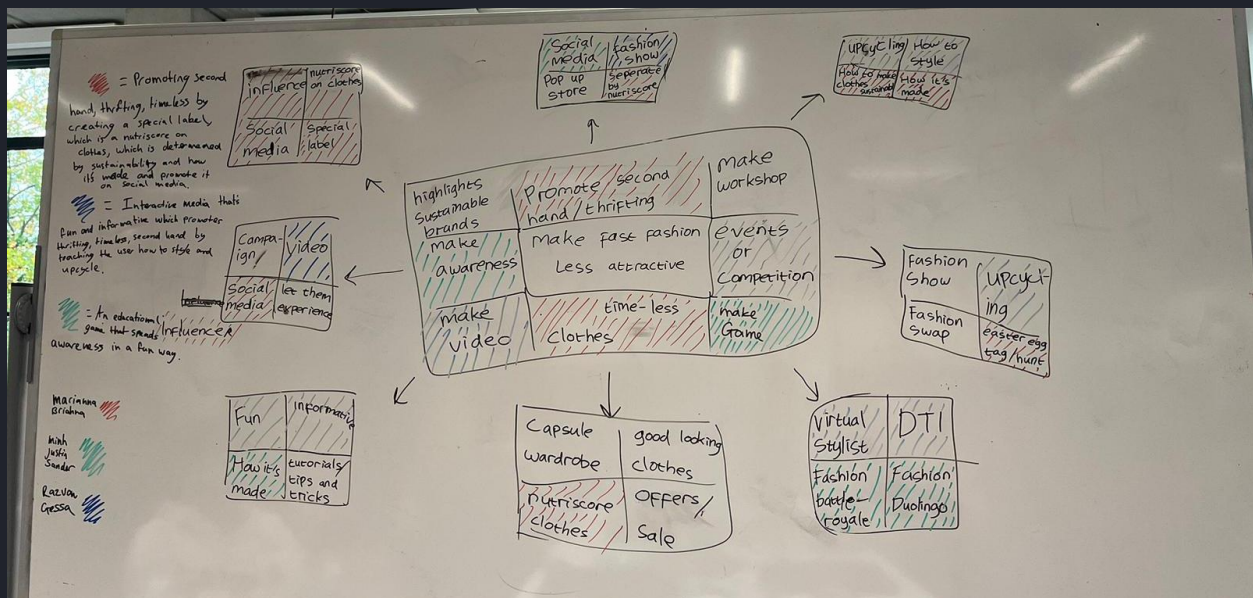 = Promoting second
hand, thrifting, timeless by
creating a special label,
which is a nutriscore on
clothes, which is determened
by sustainability and how
it's made and promote it
on social media.
= Interactive media that's
fun and informative which promotes
thrifting, timeless, second hand by
teaching the user how to style and
upcycle.
= An educational
game that spreads
awareness in a fun way.
Marianna
Brianna
Minh
Justin
Sander
Razvan
Gessa
influence
nutriscore
on clothes
Social
media
Special
label
Social
media
Fashion
show
Pop up
store
Seperate
by
nutriscore
upcycling
How to
style
How to make
clothes
sustainable
How it's
made
Campa-
ign
video
Social
media
let them
experience
Influencer
highlights
Sustainable
brands
Promote second
hand/thrifting
make
workshop
make
awareness
Make fast fashion
Less attractive
events
or
Competition
make
video
time-less
clothes
make
Game
Fashion
Show
upcycl-
ing
Fashion
Swap
easter egg
tag/hunt
Fun
Informative
How it's
made
tutorials/
tips and
tricks
Capsule
wardrobe
good looking
clothes
nutriscore
clothes
Offers/
Sale
Virtual
Stylist
DTI
Fashion
battle-
royale
Fashion
Duolingo